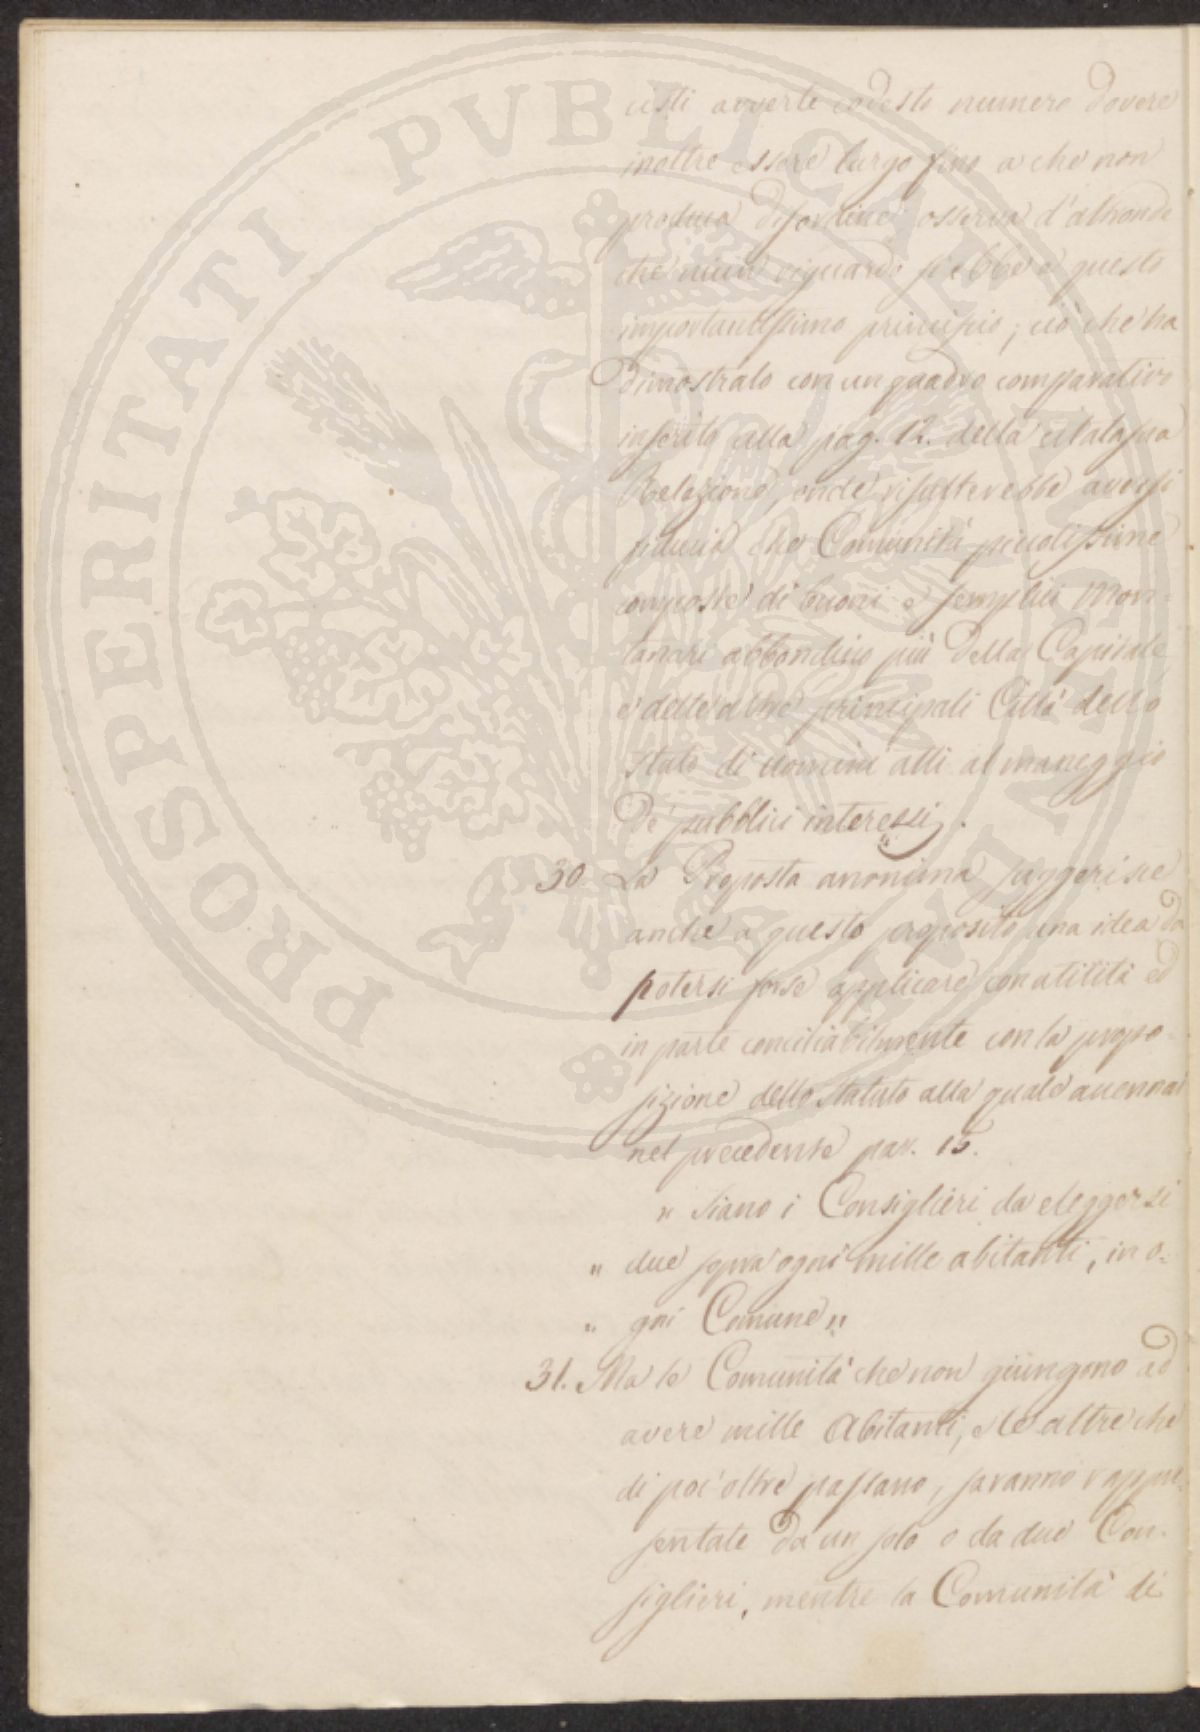 costì avverte codesto numero dovere
inoltre essere largo fino a che non
produca disordine osserva d'altronde
che niun riguardo si ebbe a questo
importantissimo principio; ciò che ha
dimostrato con un quadro comparativo
inserito alla pag. 12. della citata sua
Relazione, onde risulterebbe aversi
fiducia che Comunità piccolissime
composte di buoni e semplici Mon-
tanari abbondino più della Capitale
e delle altre principali Città dello
Stato di uomini atti al maneggio
de' pubblici interessi.
30. La Proposta anonima suggerisce
anche a questo proposito una idea da
potersi forse applicare con utilità ed
in parte conciliabilmente con la propo-
sizione dello Statuto alla quale accennai
nel precedente par. 15.
" Siano i Consiglieri da eleggersi
" due sopra ogni mille abitanti, in o-
" gni Comune "
31. Ma le Comunità che non giungono ad
avere mille Abitanti, e le altre che
di poc'oltre passano, saranno rappre-
sentate da un solo o da due Con-
siglieri, mentre la Comunità di
PROSPERITATI PVBLICAE